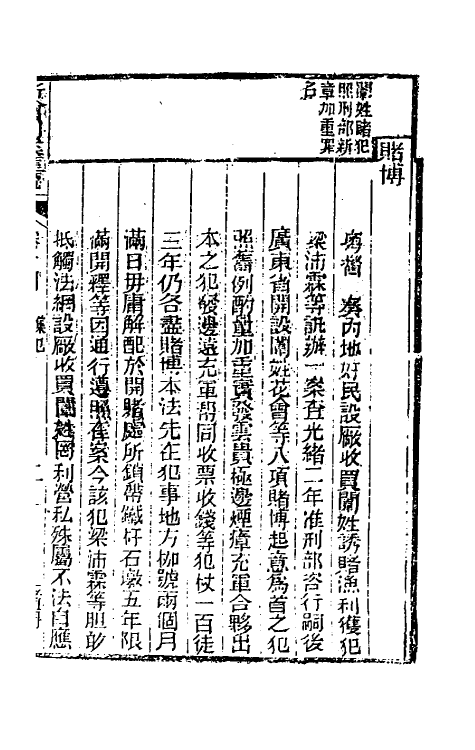 賭博
闈姓賭犯
照刑部新
章加重罪
名
粵督 奏內地奸民設廠收買闈姓誘賭漁利獲犯
梁沛霖等訊辦一案查光緒二年准刑部咨行嗣後
廣東省開設闈姓花會等八項賭博起意為首之犯
照舊例酌量加重實發雲貴極邊煙瘴充軍合夥出
本之犯發邊遠充軍幫同收票收錢等犯杖一百徒
三年仍各盡賭博本法先在犯事地方枷號兩個月
滿日毋庸解配於開賭處所鎖帶鐵杆石墩五年限
滿開釋等因通行遵照在案今該犯梁沛霖等胆敢
抵觸法網設厰收買闈姓罔利營私殊屬不法自應